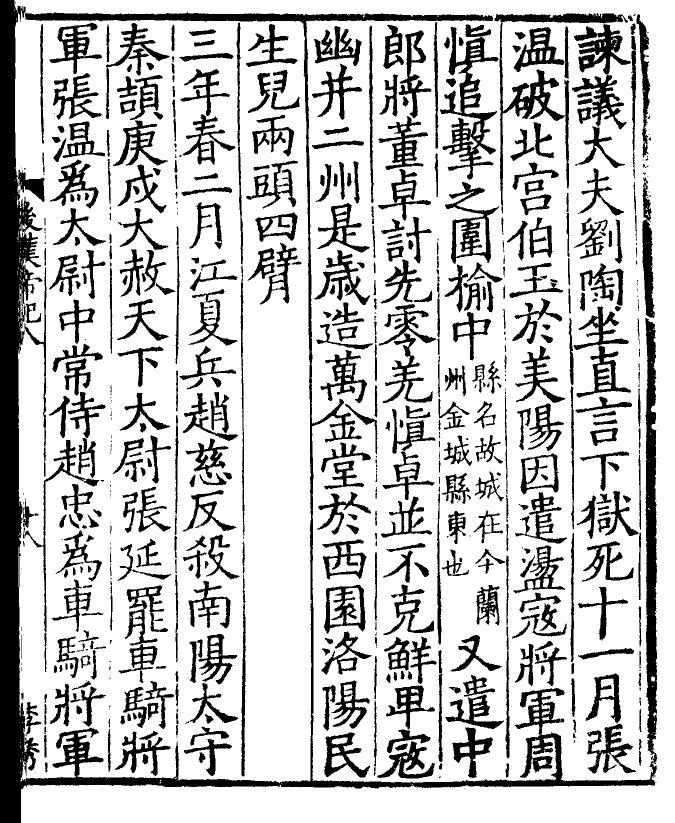 諫議大夫劉陶坐直言下獄死十一月張
温破北宮伯玉於美陽因遣盪寇將軍周
慎追擊之圍榆中縣名故城在今蘭州金城縣東也又遣中
郎將董卓討先零羌慎卓並不克鮮卑寇
幽并二州是歲造萬金堂於西園洛陽民
生兒兩頭四臂
三年春二月江夏兵趙慈反殺南陽太守
秦頡庚戌大赦天下太尉張延罷車騎將
軍張温爲太尉中常侍趙忠爲車騎將軍
後漢帝紀八
十八
李秀